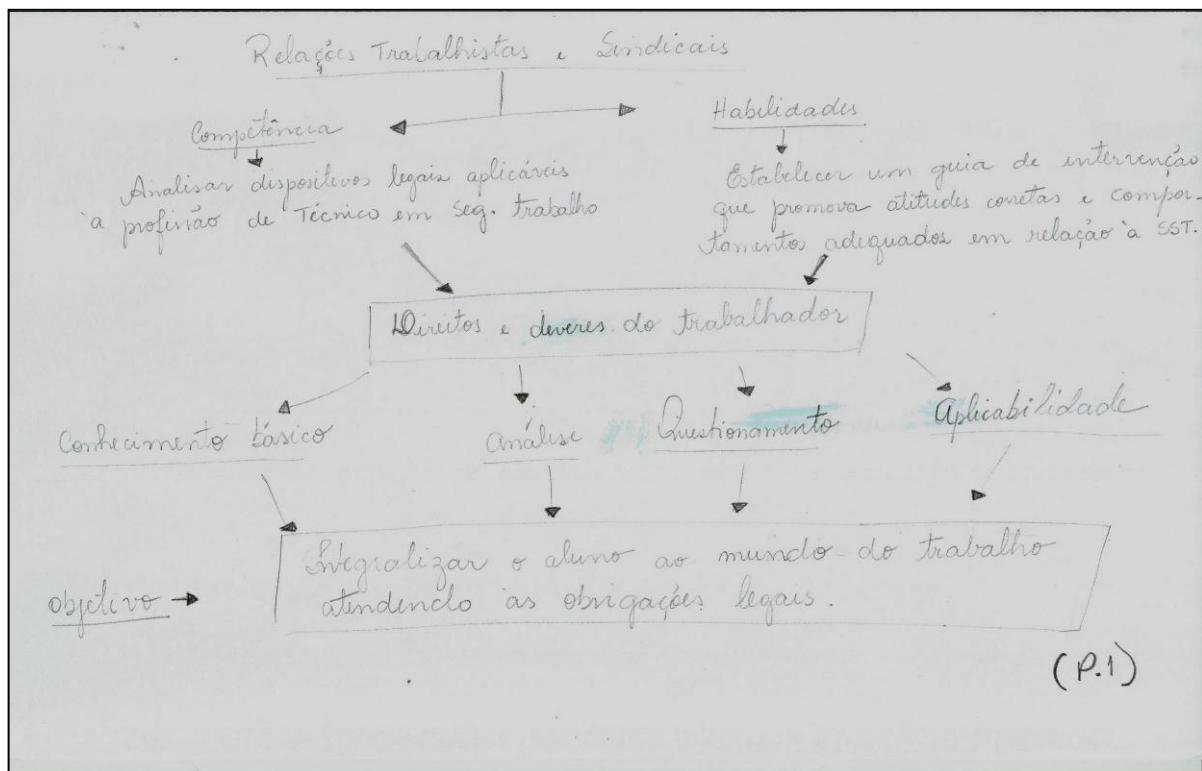 Relações Trabalhistas e Sindicais
Competência
Habilidades
Analisar dispositivos legais aplicáveis
à profissão de Técnico em Seg. trabalho
Estabelecer um guia de intervenção
que promova atitudes corretas e compor-
tamentos adequados em relação à SST.
Direitos e deveres do trabalhador
Conhecimento básico
Análise
Questionamento
Aplicabilidade
Integralizar o aluno ao mundo do trabalho
atendendo às obrigações legais.
objetivo
(P.1)